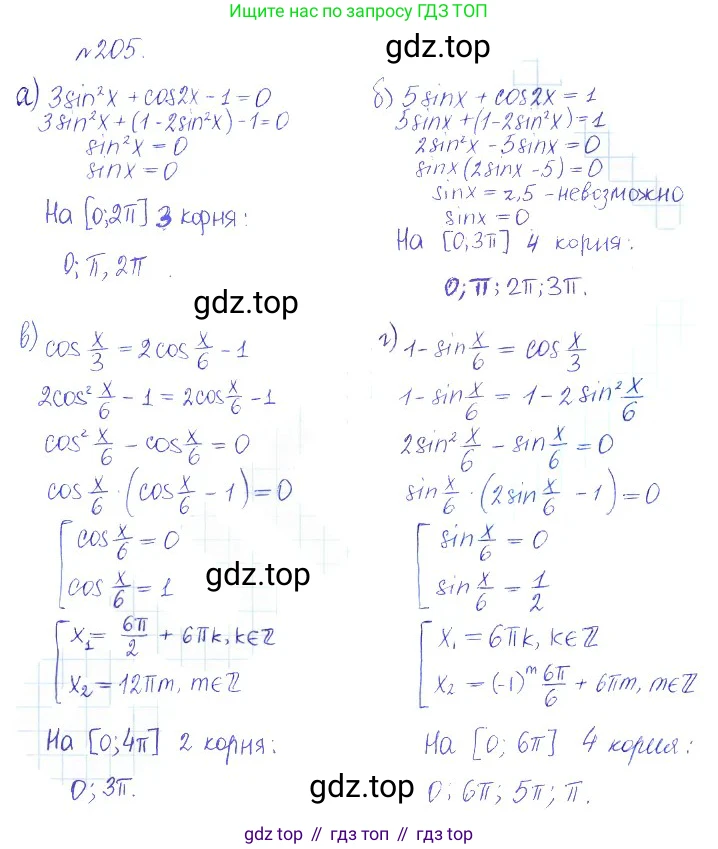 Ищите нас по запросу ГДЗ ТОП
№205.
gdz.top
а) 3sin²x + cos2x - 1 = 0
3sin²x + (1 - 2sin²x) - 1 = 0
sin²x = 0
sinx = 0
На [0; 2π] 3 корня:
0; π, 2π
б) 5sinx + cos2x = 1
5sinx + (1 - 2sin²x) = 1
2sin²x - 5sinx = 0
sinx(2sinx - 5) = 0
sinx = 2,5 - невозможно
sinx = 0
На [0, 3π] 4 корня:
0; π; 2π; 3π.
gdz.top
в) cos x/3 = 2cos x/6 - 1
2cos² x/6 - 1 = 2cos x/6 - 1
cos² x/6 - cos x/6 = 0
cos x/6 · (cos x/6 - 1) = 0
[ cos x/6 = 0
cos x/6 = 1
[ x₁ = 6π/2 + 6πk, k∈ℤ
x₂ = 12πm, m∈ℤ
На [0; 4π] 2 корня:
0; 3π.
gdz.top
г) 1 - sin x/6 = cos x/3
1 - sin x/6 = 1 - 2sin² x/6
2sin² x/6 - sin x/6 = 0
sin x/6 · (2sin x/6 - 1) = 0
[ sin x/6 = 0
sin x/6 = 1/2
[ x₁ = 6πk, k∈ℤ
x₂ = (-1)ᵐ 6π/6 + 6πm, m∈ℤ
На [0; 6π] 4 корня:
0; 6π; 5π; π.
gdz.top
gdz top // гдз топ // gdz.top